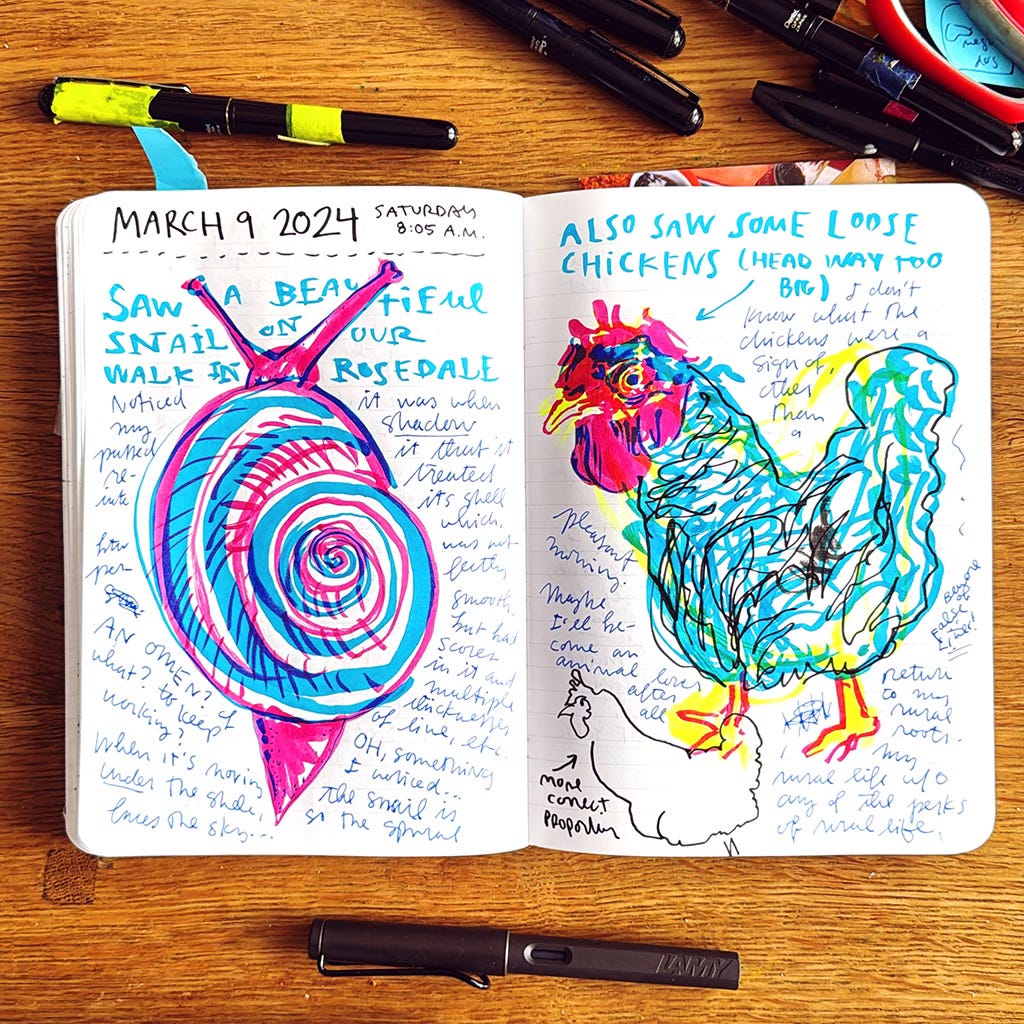 MARCH 9 2024
SATURDAY
8:05 A.M.
SAW A BEAUTIFUL
SNAIL ON OUR
WALK IN ROSEDALE
Noticed it was when
my shadow
passed it that it
re- treated
into its shell
which,
was not
per- fectly
smooth,
but had
scores
in it and
multiple
thicknesses
of line, etc.
AN OMEN?
what? to keep
working?
When it's moving
under the shell,
faces the sky...
OH, something
I noticed...
The snail is
so the spiral
ALSO SAW SOME LOOSE
CHICKENS (HEAD WAY TOO
BIG)
I don't
know what the
chickens were a
sign of,
other
than
a
pleasant
morning.
Maybe
I'll be-
come an
animal lover
after
all
MORE
CORRECT
PROPORTION
Return
to my
rural
roots.
My
rural life w/o
any of the perks
of rural life,
LAMY